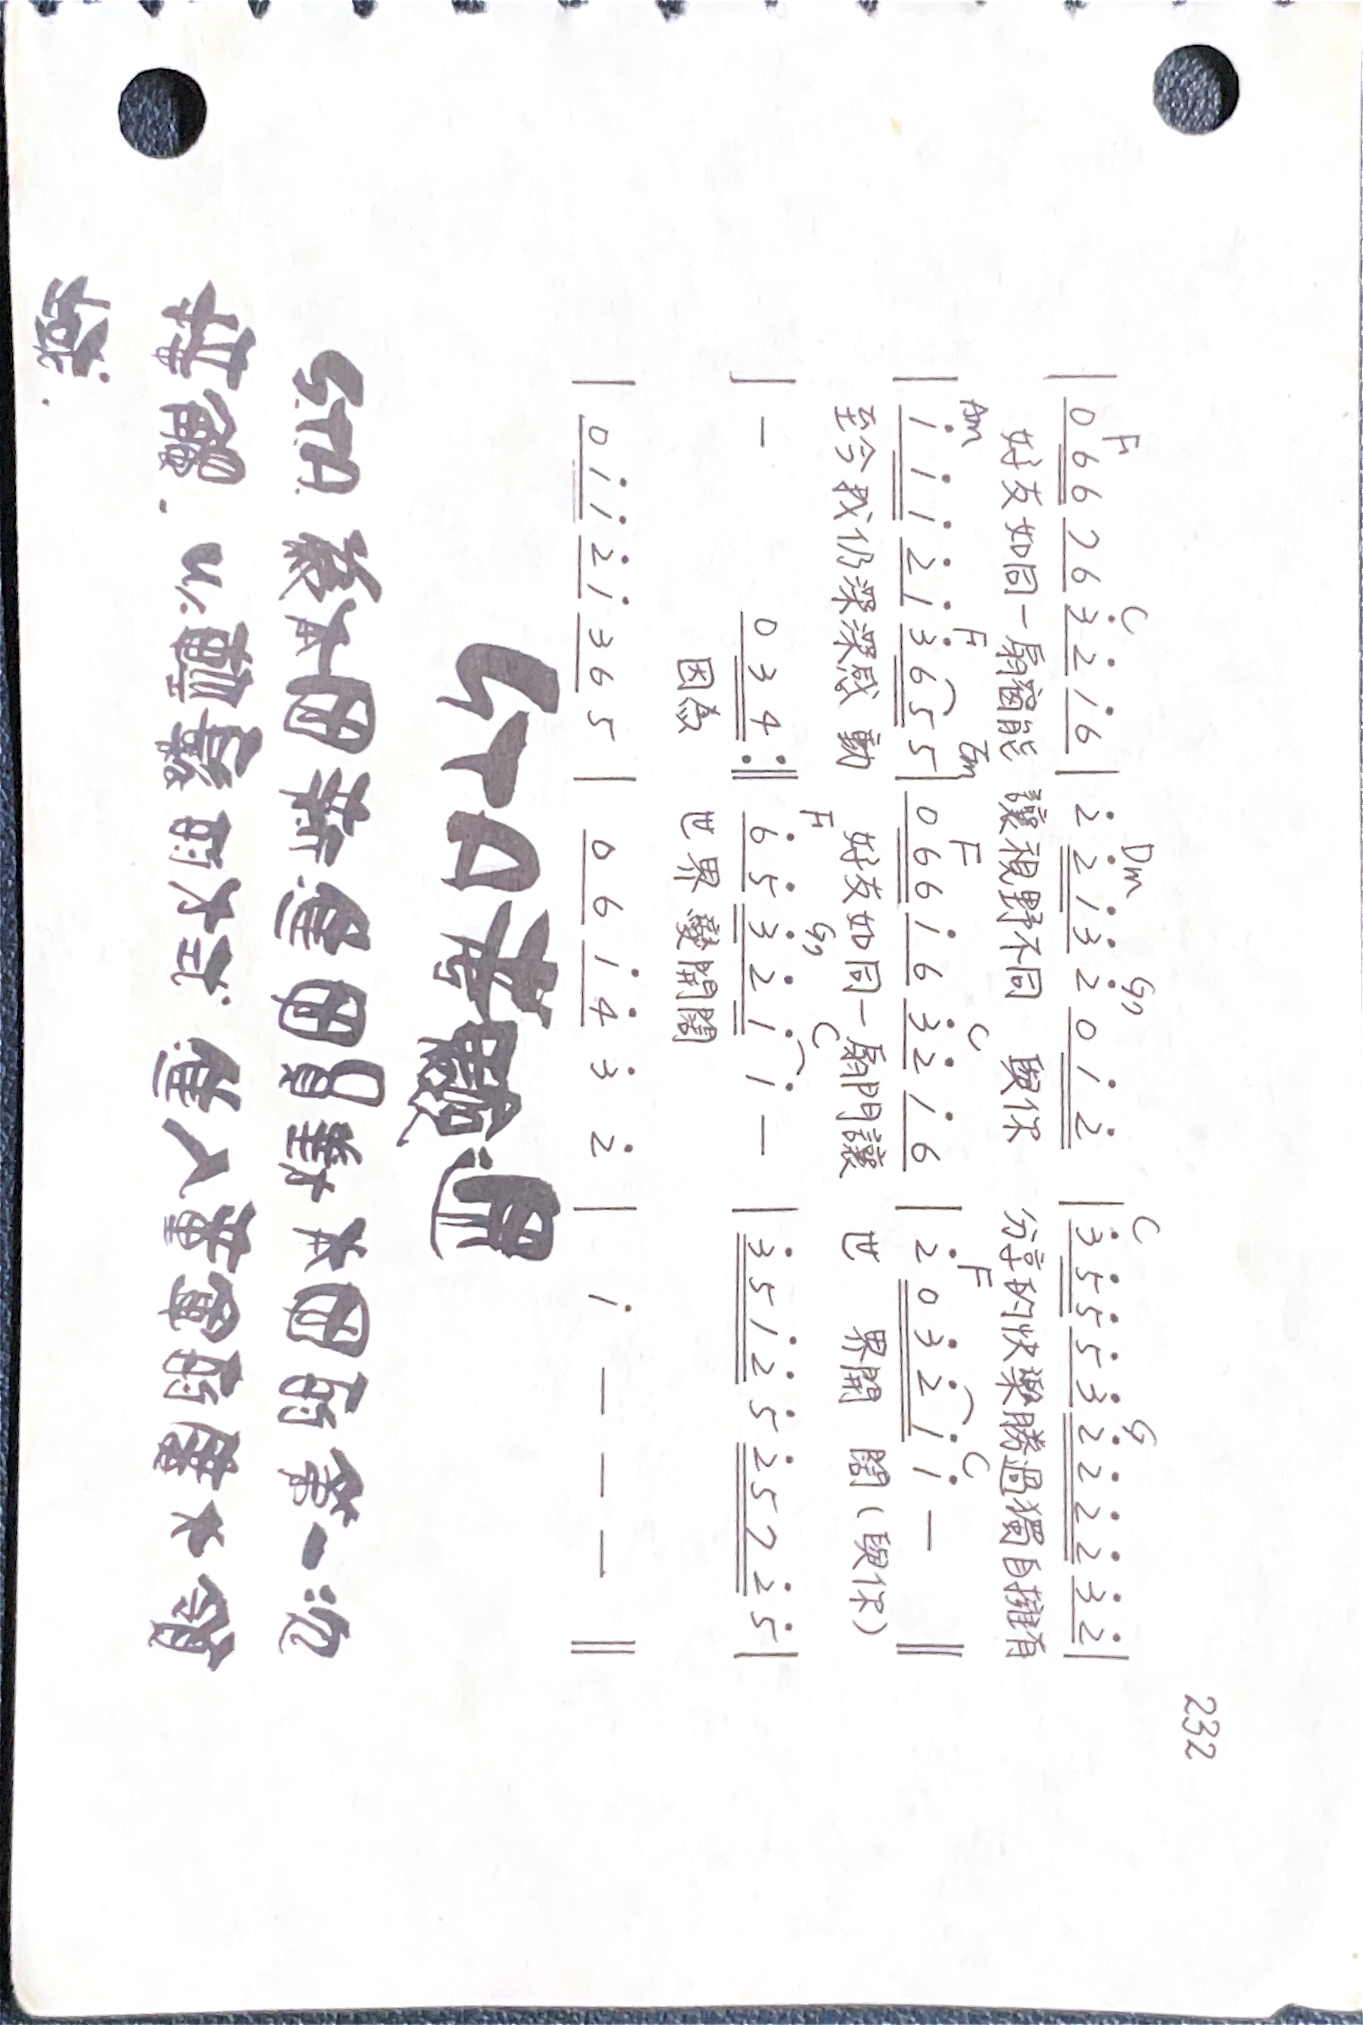 232
F C Dm G7 C G
| 0 6 6 7 6 3̇ 2̇ 1̇ 6 | 2̇ 2̇ 1̇ 3̇ 2̇ 0 1̇ 2̇ | 3̇ 5̇ 5̇ 5̇ 3̇ 2̇ 2̇ 2̇ 2̇ 3̇ 2̇ |
好友如同一扇窗能 讓視野不同 與你 分享的快樂勝過獨自擁有
Am F Em F C F C
| 1̇ 1̇ 1̇ 2̇ 1̇ 3̇ 6 5 5 | 0 6 6 1̇ 6 3̇ 2̇ 1̇ 6 | 2̇ 0 3̇ 2̇ 1̇ 1̇ — ‖
至今我仍深深感 動 好友如同一扇門讓 世 界開 闊(與你)
F G7 C
| — 0 3 4 :‖ 6̇ 5̇ 3̇ 2̇ 1̇ 1̇ — | 3̇ 5 1̇ 2̇ 5̇ 2̇ 5 7 2̇ 5̇ |
因為 世界變開闊
| 0 1̇ 1̇ 2̇ 1̇ 3 6 5 | 0 6 1̇ 4̇ 3̇ 2̇ | 1̇ — — — ‖
STA考驗週
S.T.A. 為本團新進團員對本團的第一次
接觸.以輕鬆的方式進入童軍的廣大領
域.